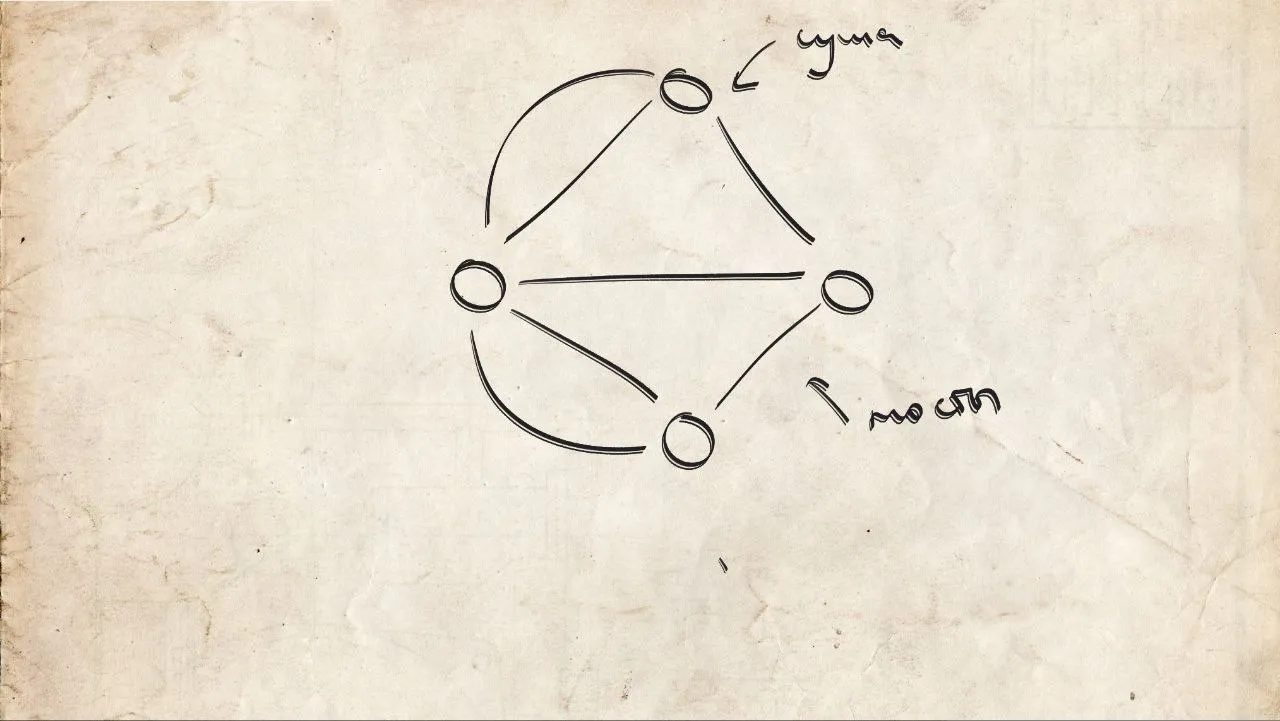 суша
мосты